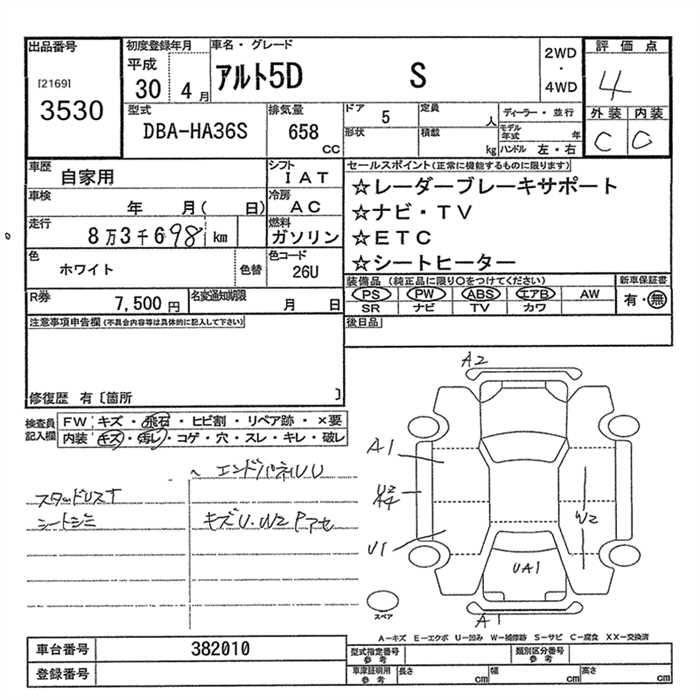 出品番号
[2169]
3530
初度登録年月
平成
30 4 月
車名・グレード
アルト5D S
2WD
・
4WD
評価点
4
外装 内装
C C
型式
DBA-HA36S
排気量
658
CC
ドア 5
形状
定員 人
積載 kg
ディーラー・並行
モデル年式 年
ハンドル 左・右
車歴
自家用
シフト
IAT
車検
年 月( 日)
冷房
AC
走行
8万3千698 km
燃料
ガソリン
色
ホワイト
色替
色コード
26U
R券
7,500円
名変通知期限
月 日
セールスポイント(正常に機能するものに限ります)
☆レーダーブレーキサポート
☆ナビ・TV
☆ETC
☆シートヒーター
装備品(純正品に限り○をつけてください)
PS PW ABS エアB AW
SR ナビ TV カワ
新車保証書
有・無
後日品
注意事項申告欄(不具合内容等は具体的に記入して下さい)
修復歴 有〔箇所 〕
検査員記入欄
FW キズ・飛石・ヒビ割・リペア跡・×要
内装 キズ・汚れ・コゲ・穴・スレ・キレ・破レ
エンドパネルU
シートシミ
キズU.W2 Pアセ
A2
A1
U2
A4
U1
W2
UA1
A1
スペア
A−キズ E−エクボ U−凹み W−補修跡 S−サビ C−腐食 XX−交換済
車台番号 382010
登録番号
型式指定番号
参考
類別区分番号
参考
車庫証明用
参考
長さ cm
幅 cm
高さ cm